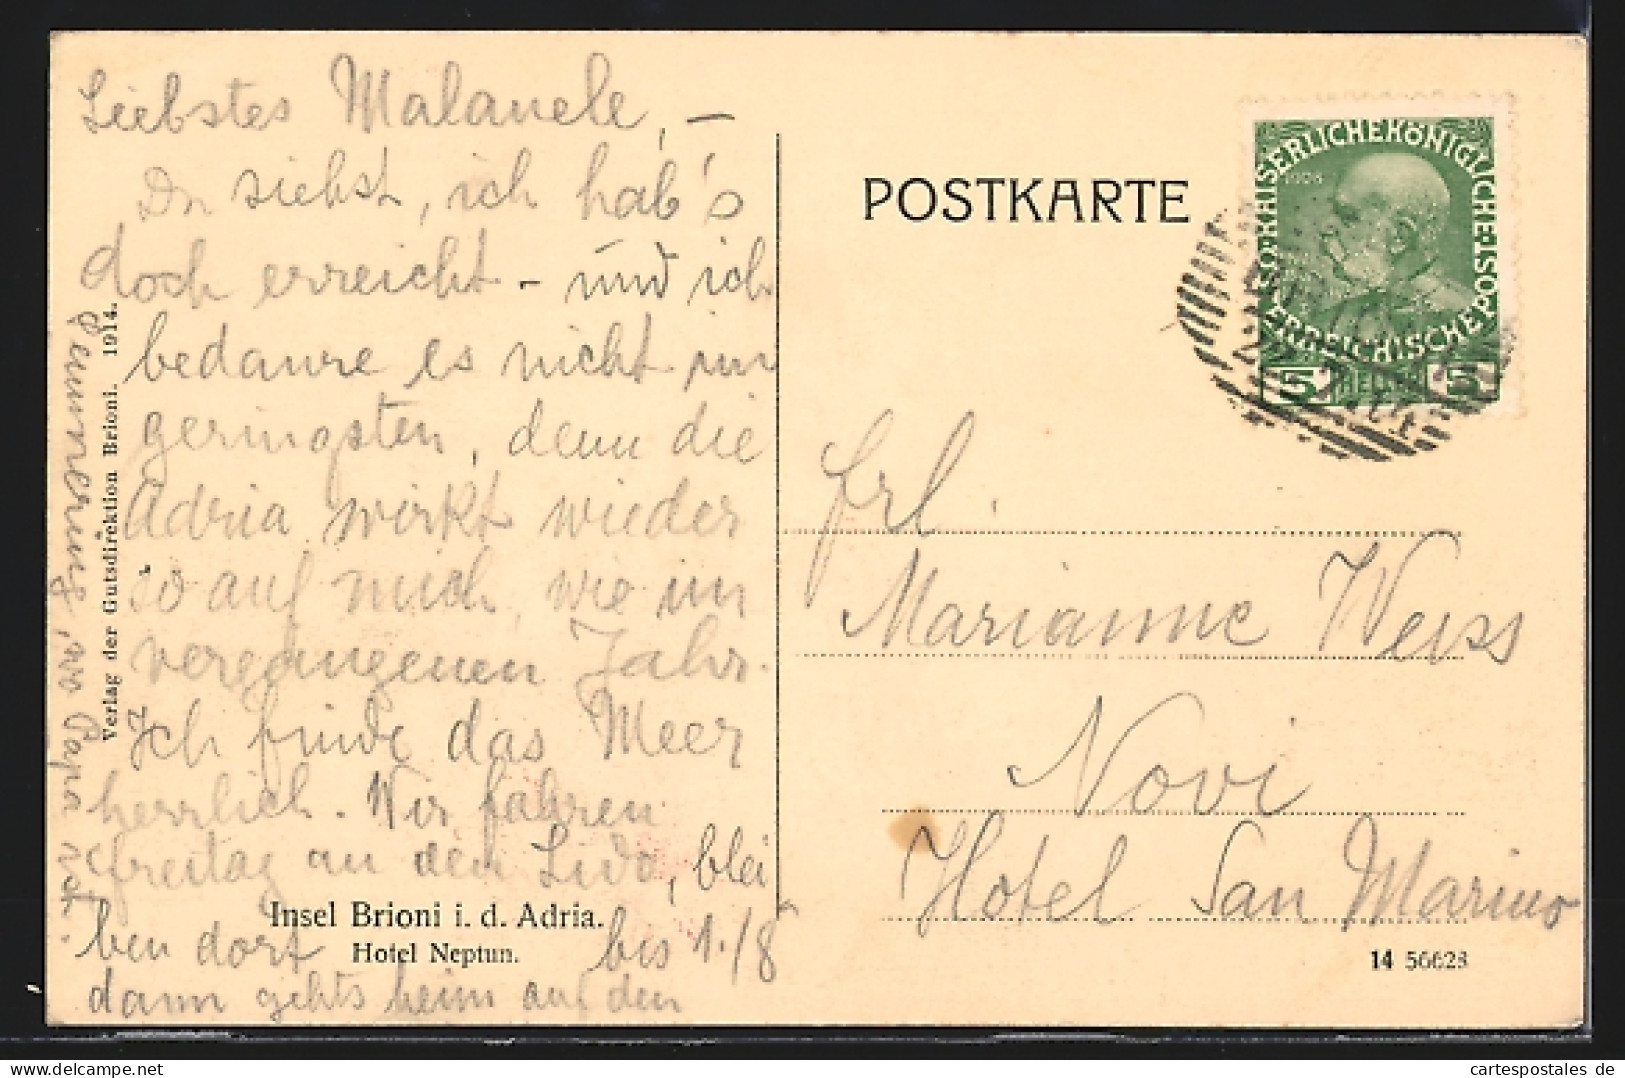 Liebstes Malanele, –
Du siehst, ich hab's
doch erreicht – und ich
bedaure es nicht im
geringsten, denn die
Adria wirkt wieder
so auf mich, wie im
vergangenen Jahr.
Ich finde das Meer
herrlich. Wir fahren
freitag an den Lido, blei
ben dort bis 1./8
dann gehts heim auf den
wo Papa ist.
Verlag der Gutsdirektion Brioni. 1914.
Insel Brioni i. d. Adria.
Hotel Neptun.
POSTKARTE
KAISERLICHE KÖNIGLICHE ÖSTERREICHISCHE POST
1908
5 HELLER 5
Frl.
Marianne Weiss
Novi
Hotel San Marino
14 56628
www.cartespostales.de
cartespostales de